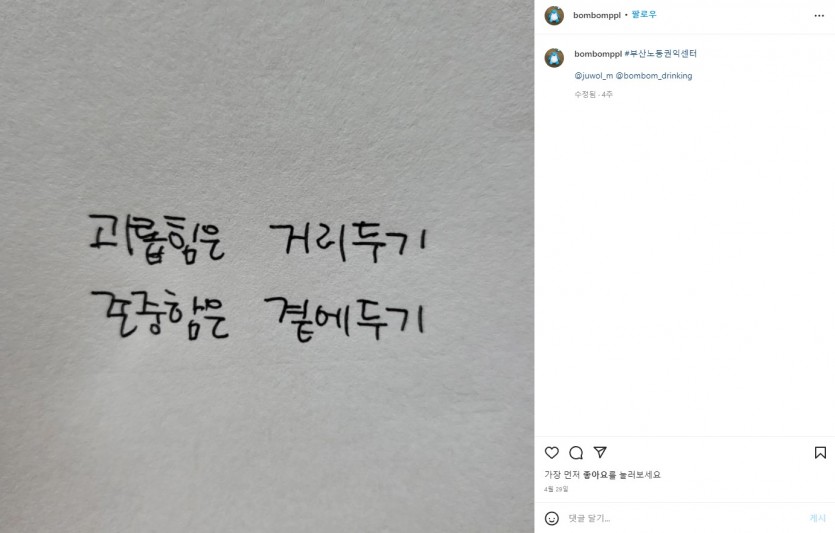 괴롭힘은 거리두기
존중함은 곁에두기
bombomppl • 팔로우
bombomppl #부산노동권익센터
@juwol_m @bombom_drinking
수정됨 · 4주
가장 먼저 좋아요를 눌러보세요
4월 29일
댓글 달기...
게시